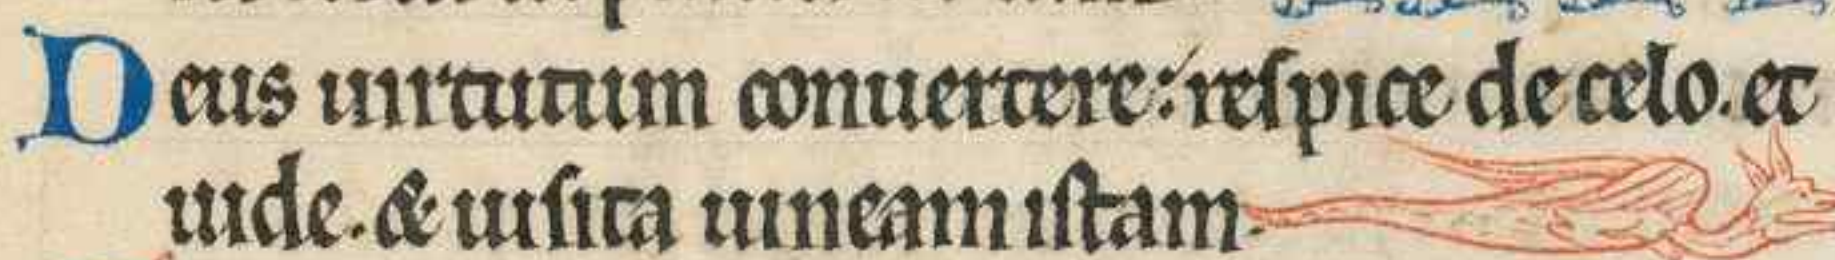 Deus uirtutum conuertere: respice de celo. et
uide. & uisita uineam istam.